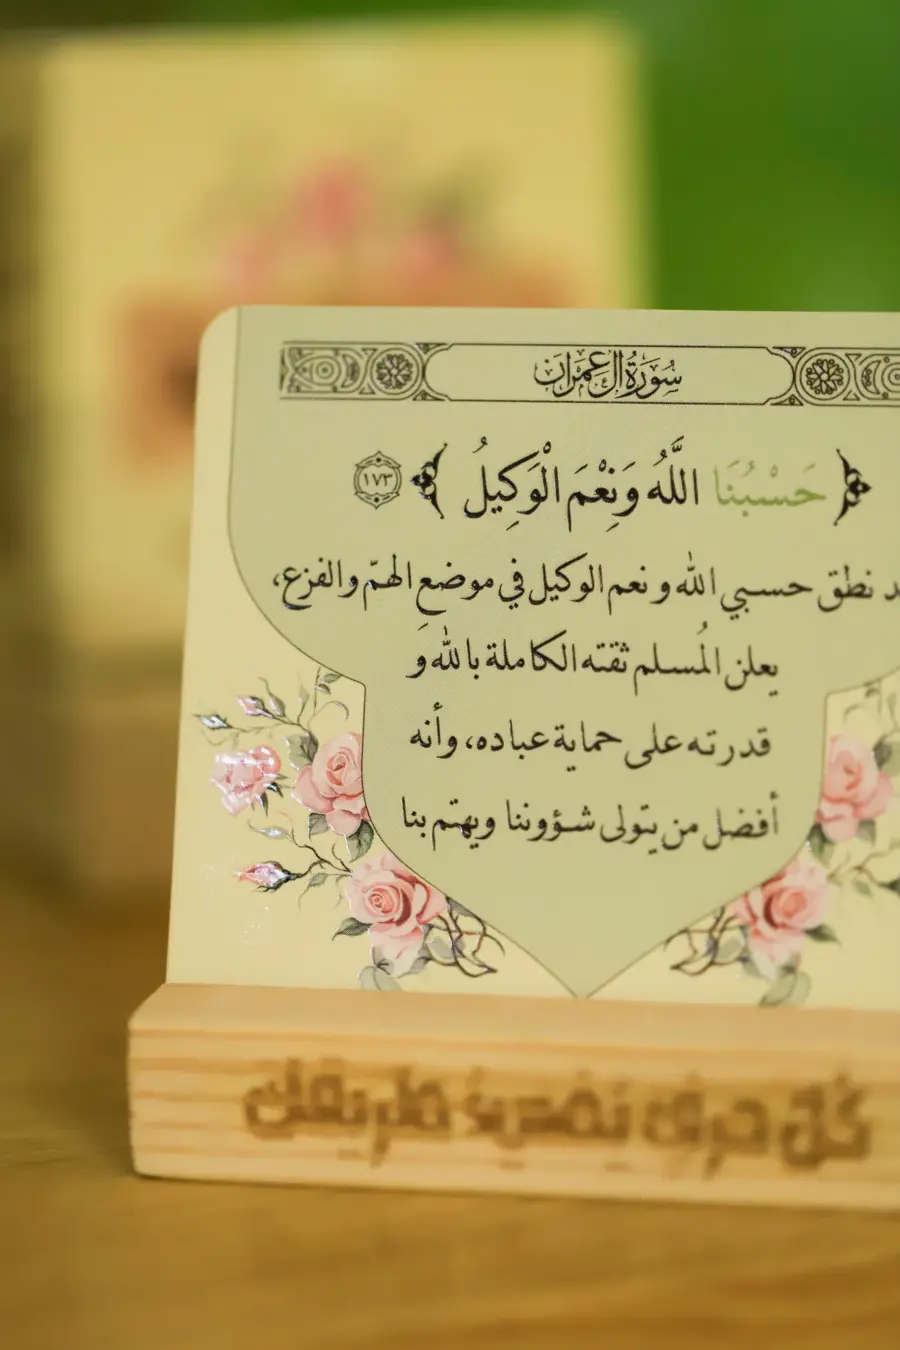 سُورَةُ آل عِمْرَان
﴿ حَسْبُنَا اللَّهُ وَنِعْمَ الْوَكِيلُ ﴾ ١٧٣
نطق حسبي الله و نعم الوكيل في موضع الهمّ والفزع،
يعلن المُسلم ثقته الكاملة بالله وَ
قدرته على حماية عباده، وأنه
أفضل من يتولى شؤوننا ويهتم بنا
كُلّ حرفٍ يُضيءُ طريقك